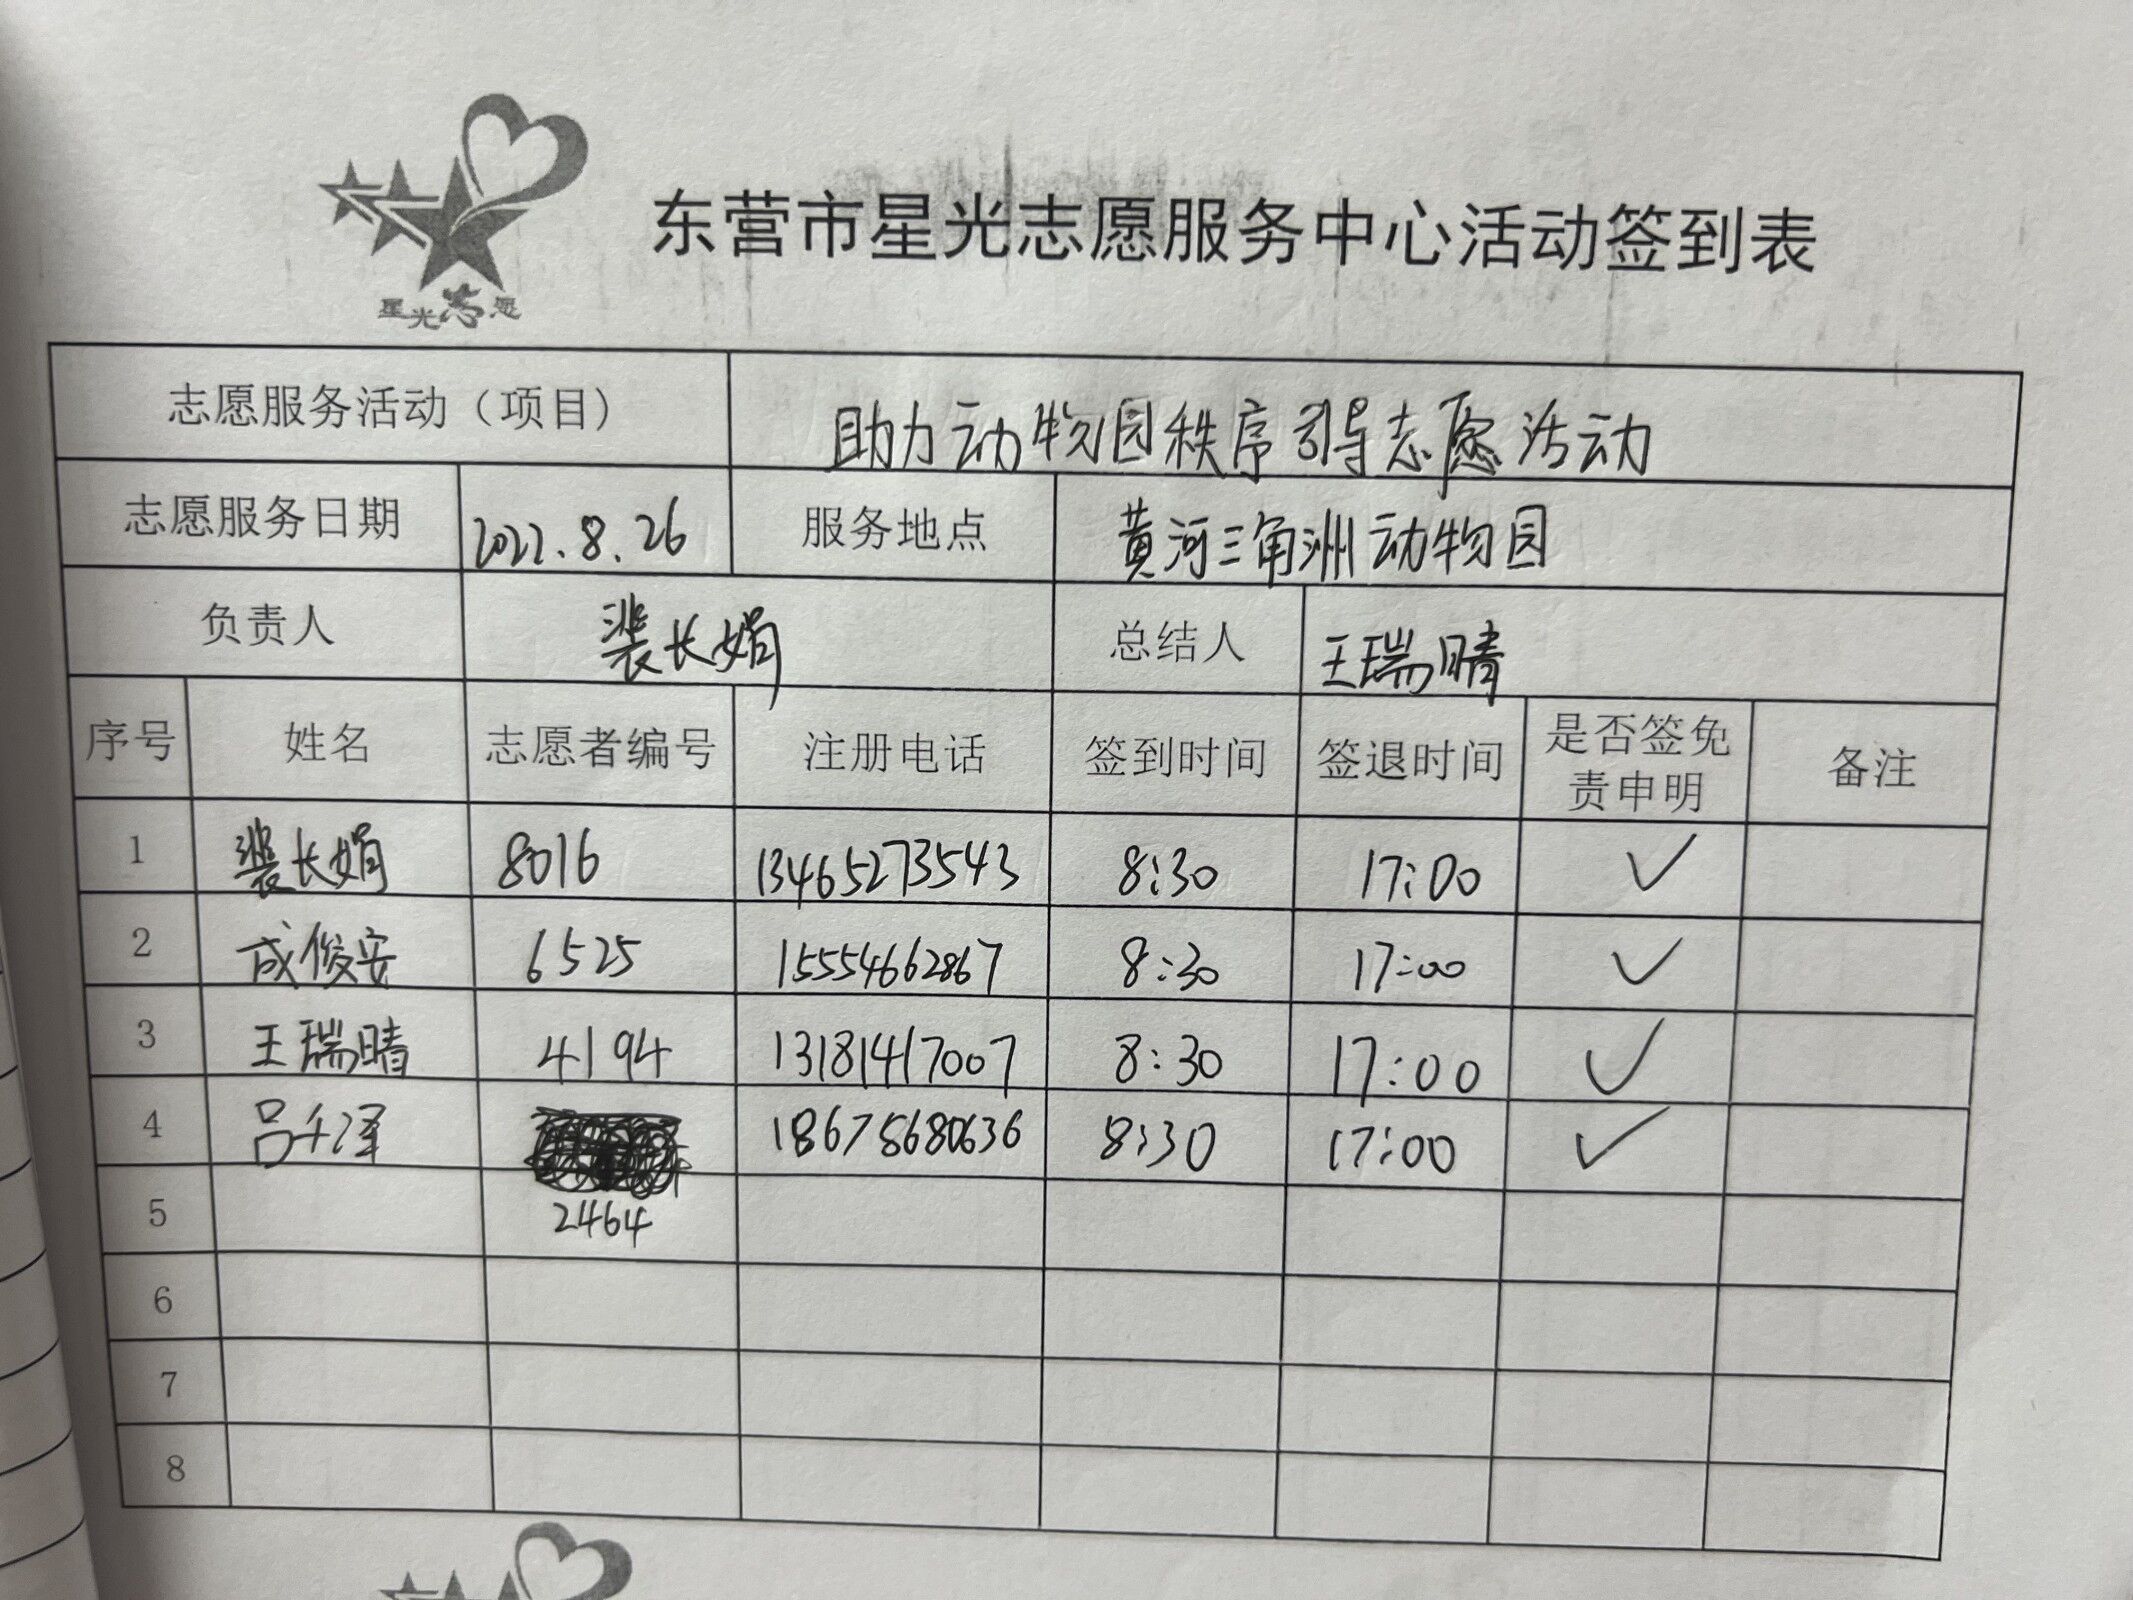 星光志愿
东营市星光志愿服务中心活动签到表
志愿服务活动（项目） 助力动物园秩序引导志愿活动
志愿服务日期 2022.8.26 服务地点 黄河三角洲动物园
负责人 裴长娟 总结人 王瑞晴
序号 姓名 志愿者编号 注册电话 签到时间 签退时间 是否签免责申明 备注
1 裴长娟 8016 13465273543 8:30 17:00 ✓
2 成俊安 6525 15554662867 8:30 17:00 ✓
3 王瑞晴 4194 13181417007 8:30 17:00 ✓
4 吕千泽 18675680636 8:30 17:00 ✓
5 2464
6
7
8